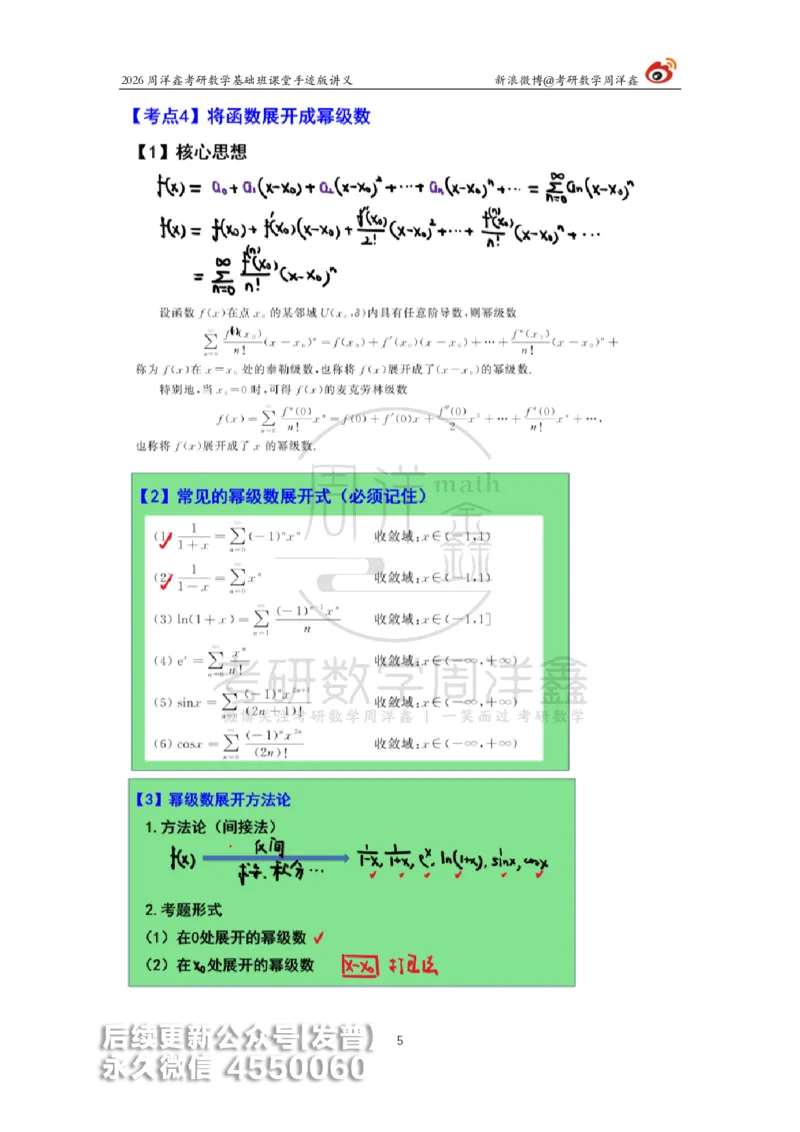 2026 周洋鑫考研数学基础班课堂手迹版讲义 新浪微博@考研数学周洋鑫
【考点4】将函数展开成幂级数
【1】核心思想
f(x) = a₀ + a₁(x-x₀) + a₂(x-x₀)² + ⋯ + aₙ(x-x₀)ⁿ + ⋯ = ∑_{n=0}^{∞} aₙ(x-x₀)ⁿ
f(x) = f(x₀) + f'(x₀)(x-x₀) + f''(x₀)/2! (x-x₀)² + ⋯ + f⁽ⁿ⁾(x₀)/n! (x-x₀)ⁿ + ⋯
= ∑_{n=0}^{∞} f⁽ⁿ⁾(x₀)/n! (x-x₀)ⁿ
设函数 f(x)在点 x₀ 的某邻域 U(x₀,δ)内具有任意阶导数,则幂级数
∑_{n=0}^{∞} f⁽ⁿ⁾(x₀)/n! (x-x₀)ⁿ = f(x₀)+f'(x₀)(x-x₀)+⋯+ fⁿ(x₀)/n! (x-x₀)ⁿ+
称为 f(x)在 x=x₀ 处的泰勒级数,也称将 f(x)展开成了(x-x₀)的幂级数.
特别地,当 x₀=0 时,可得 f(x)的麦克劳林级数
f(x)=∑_{n=0}^{∞} fⁿ(0)/n! xⁿ=f(0)+f'(0)x+ f''(0)/2 x²+⋯+ fⁿ(0)/n! xⁿ+⋯,
也称将 f(x)展开成了 x 的幂级数.
周洋鑫 math
【2】常见的幂级数展开式（必须记住）
(1) 1/(1+x) = ∑_{n=0}^{∞}(-1)ⁿxⁿ 收敛域:x∈(-1,1)
(2) 1/(1-x) = ∑_{n=0}^{∞}xⁿ 收敛域:x∈(-1,1)
(3) ln(1+x) = ∑_{n=1}^{∞} (-1)ⁿ⁻¹xⁿ/n 收敛域:x∈(-1,1]
(4) eˣ = ∑_{n=0}^{∞} xⁿ/n! 收敛域:x∈(-∞,+∞)
考研数学周洋鑫
(5) sinx = ∑_{n=0}^{∞} (-1)ⁿx²ⁿ⁺¹/(2n+1)! 收敛域:x∈(-∞,+∞)
微博关注考研数学周洋鑫 | 一笑而过 考研数学
(6) cosx = ∑_{n=0}^{∞} (-1)ⁿx²ⁿ/(2n)! 收敛域:x∈(-∞,+∞)
【3】幂级数展开方法论
1.方法论（间接法）
f(x) 求导、积分⋯ 1/(1-x), 1/(1+x), eˣ, ln(1+x), sinx, cosx
2.考题形式
（1）在0处展开的幂级数
（2）在x₀处展开的幂级数 x-x₀
后续更新公众号[发普]
永久微信 4550060
5